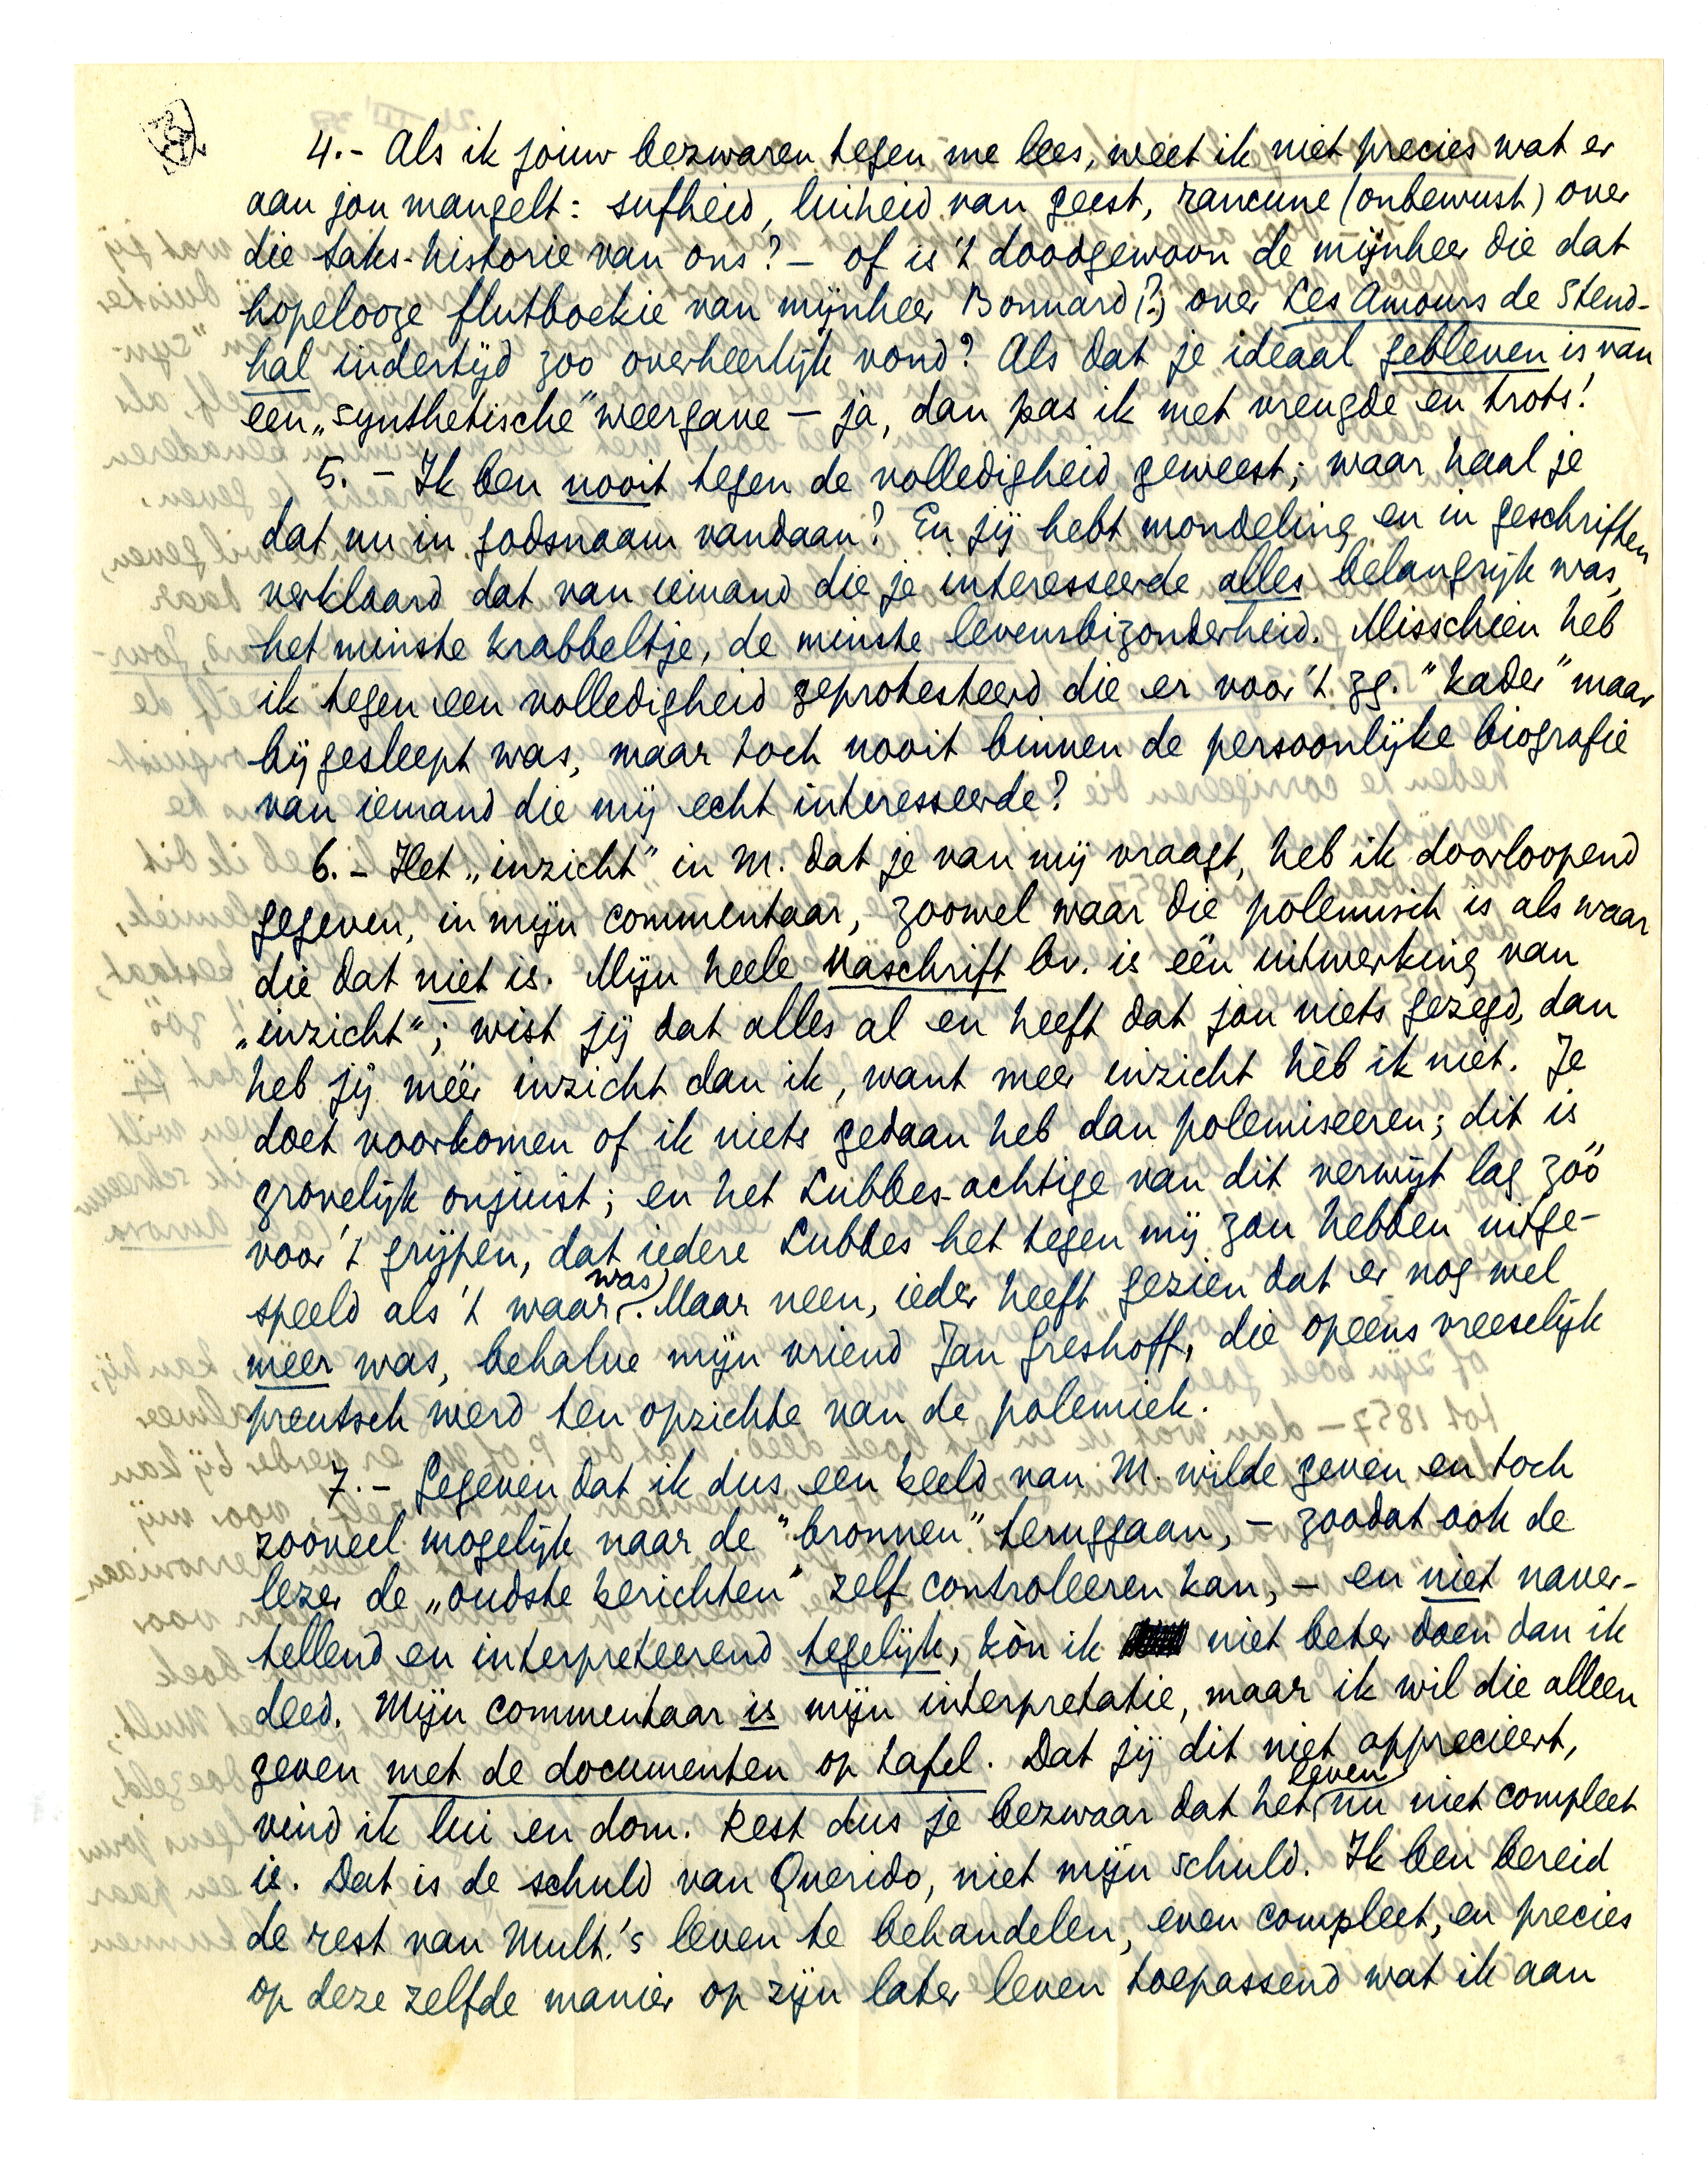 4.- Als ik jouw bezwaren tegen me lees, weet ik niet precies wat er
aan jou mangelt: sufheid, luiheid van geest, rancune (onbewust) over
die saks-historie van ons? - of is 't doodgewoon de mijnheer die dat
hopelooze flutboekie van mijnheer Bonnard (?) over Les Amours de Stend-
hal indertijd zoo overheerlijk vond? Als dat je ideaal gebleven is van
een „synthetische" weergave - ja, dan pas ik met vreugde en trots!
5. - Ik ben nooit tegen de volledigheid geweest; waar haal je
dat nu in godsnaam vandaan? En jij hebt mondeling en in geschriften
verklaard dat van iemand die je interesseerde alles belangrijk was,
het minste krabbeltje, de minste levensbizonderheid. Misschien heb
ik tegen een volledigheid geprotesteerd die er voor 't zg. "kader" maar
bijgesleept was, maar toch nooit binnen de persoonlijke biografie
van iemand die mij echt interesseerde?
6. - Het „inzicht" in M. dat je van mij vraagt, heb ik doorloopend
gegeven, in mijn commentaar, zoowel waar die polemisch is als waar
die dat niet is. Mijn heele naschrift bv. is één uitwerking van
„inzicht"; wist jij dat alles al en heeft dat jou niets gezegd, dan
heb jij méér inzicht dan ik, want meer inzicht hèb ik niet. Je
doet voorkomen of ik niets gedaan heb dan polemiseeren; dit is
grovelijk onjuist; en het Lubbes-achtige van dit verwijt lag zóó
voor 't grijpen, dat iedere Lubbes het tegen mij zou hebben uitge-
speeld als 't waar was. Maar neen, ieder heeft gezien dat er nog wel
meer was, behalve mijn vriend Jan Greshoff, die opeens vreeselijk
preutsch werd ten opzichte van de polemiek.
7. - Gegeven dat ik dus een beeld van M. wilde geven en toch
zooveel mogelijk naar de "bronnen" teruggaan, - zoodat ook de
lezer de „oudste berichten" zelf controleeren kan, - en niet naver-
tellend en interpreteerend tegelijk, kòn ik niet beter doen dan ik
deed. Mijn commentaar is mijn interpretatie, maar ik wil die alleen
geven met de documenten op tafel. Dat jij dit niet apprecieert,
vind ik lui en dom. Rest dus je bezwaar dat het leven nu niet compleet
is. Dat is de schuld van Querido, niet mijn schuld. Ik ben bereid
de rest van Mult.'s leven te behandelen, even compleet, en precies
op deze zelfde manier op zijn later leven toepassend wat ik aan